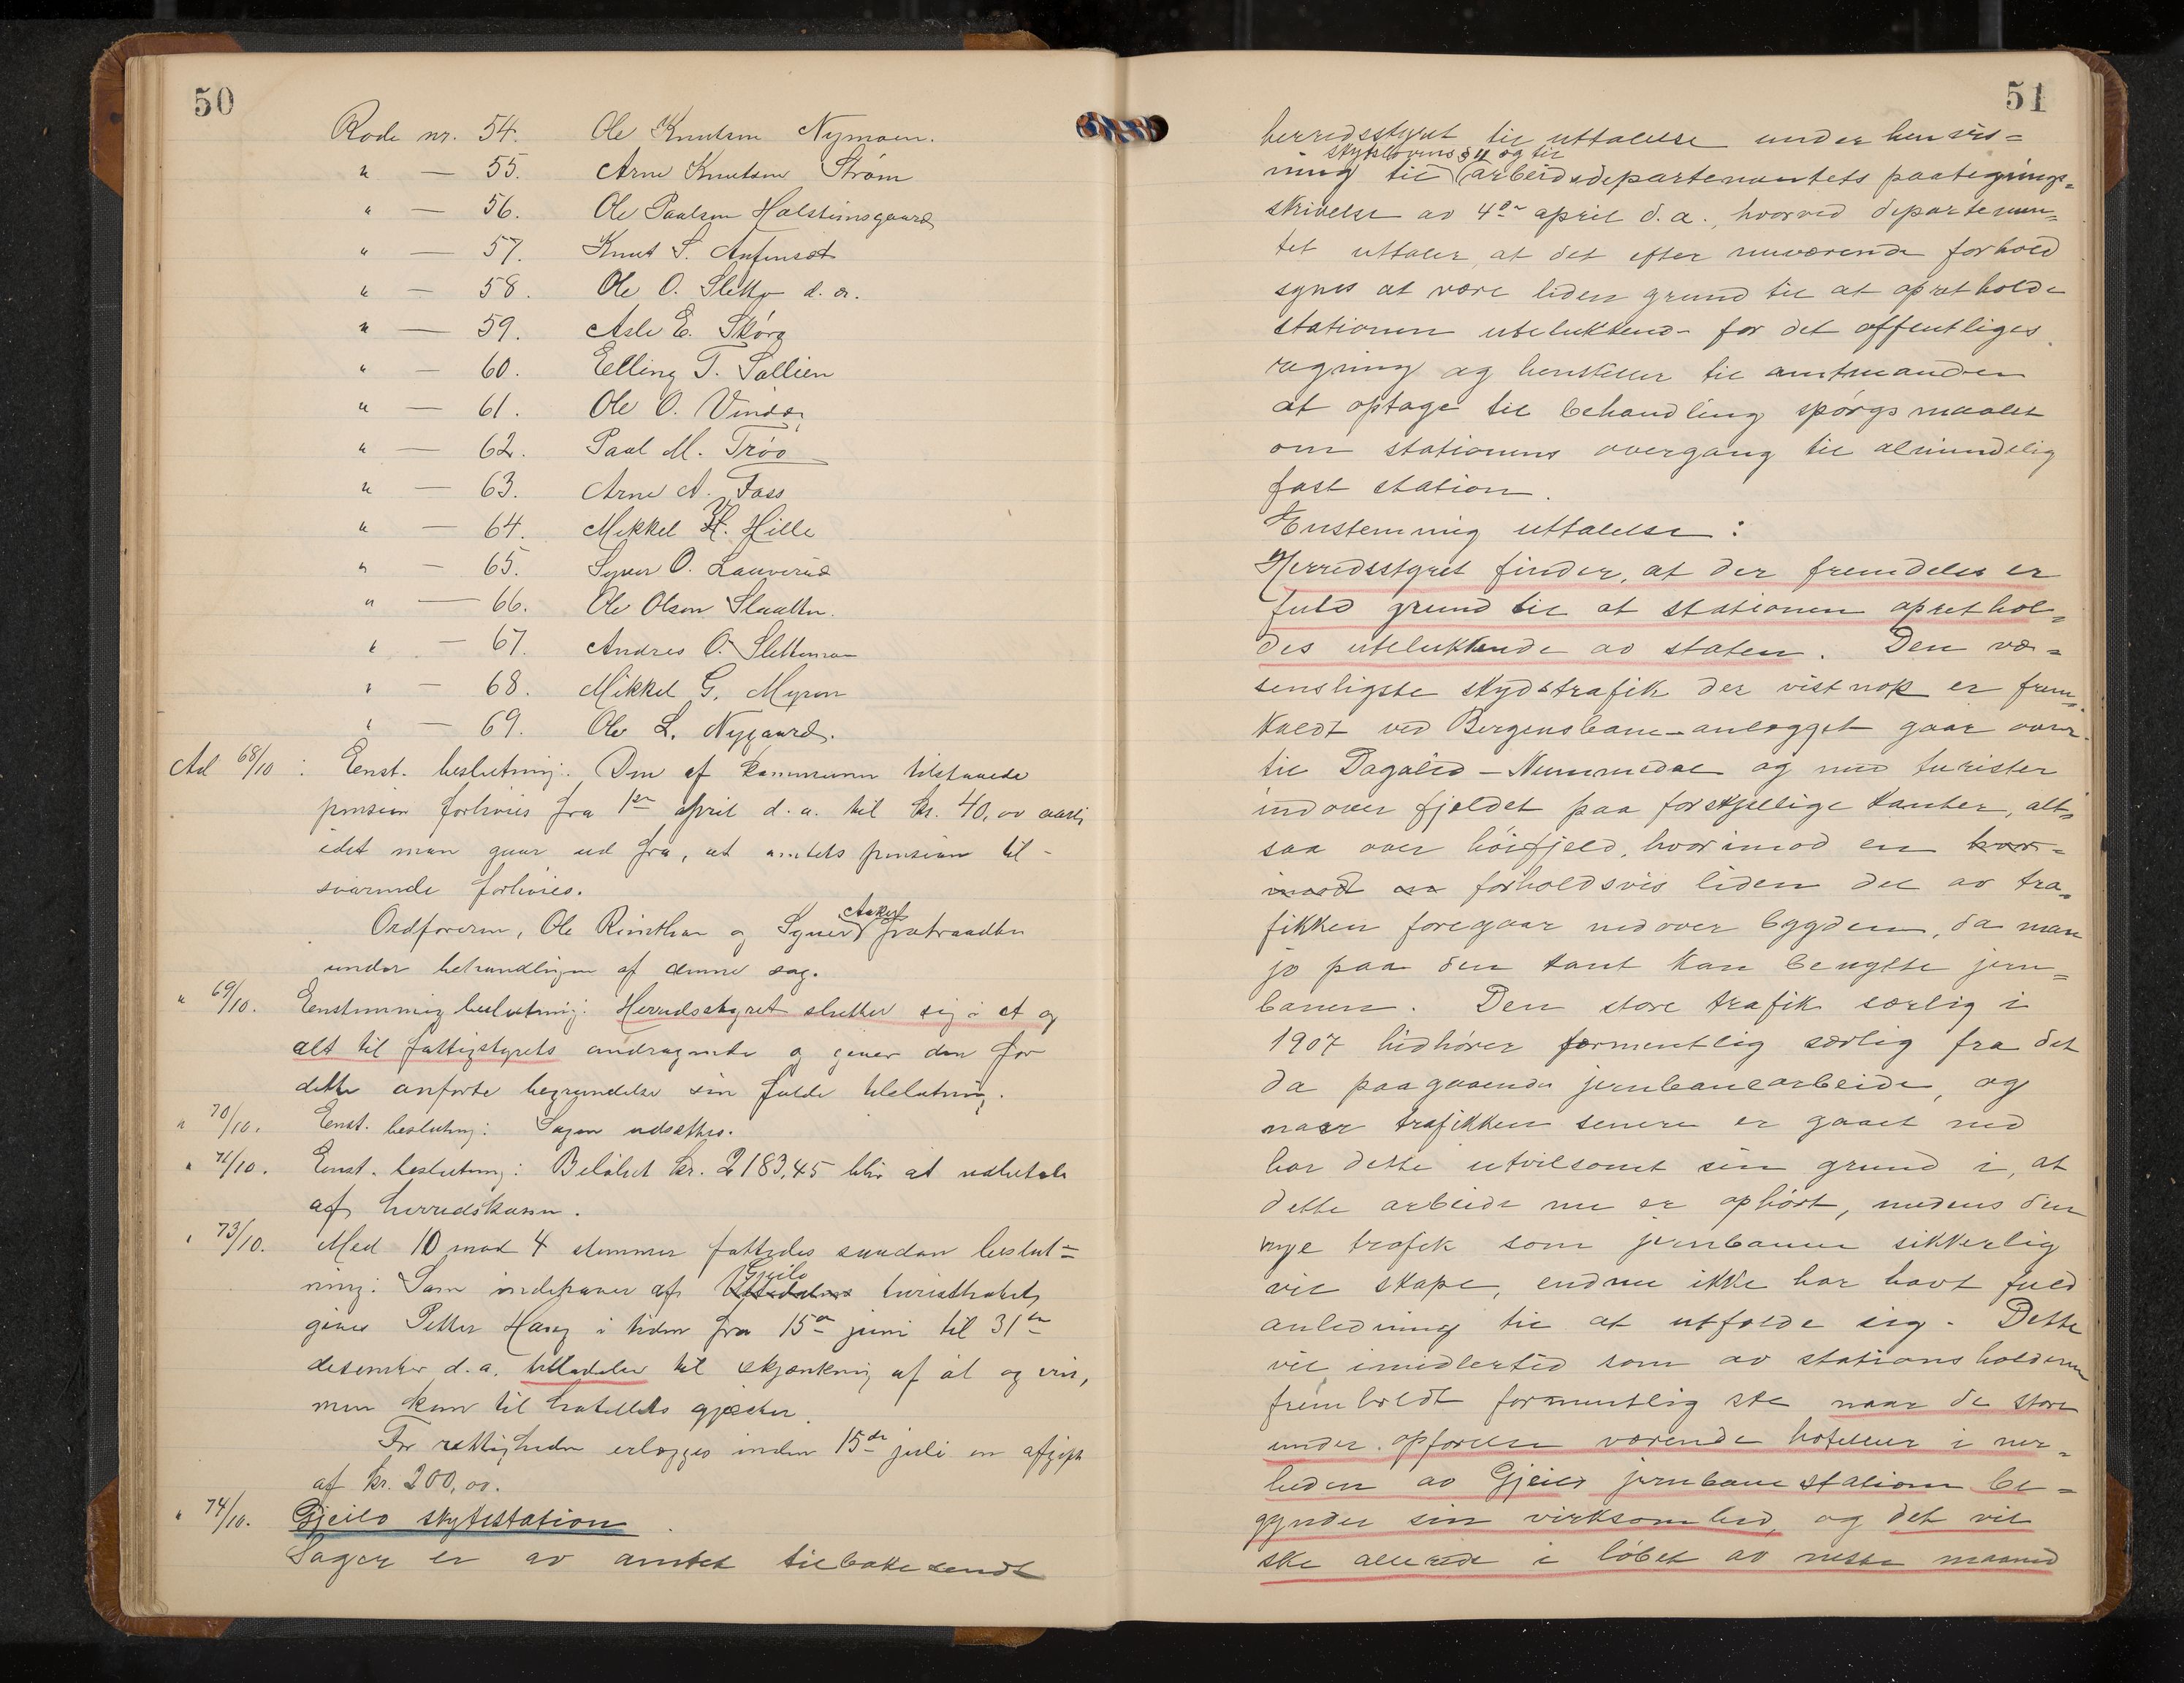 50
Rode nr. 54. Ole Knutsen Nymoen.
" — 55. Arne Knutsen Strøm
" — 56. Ole Paulsen Holsteinsgaard
" — 57. Knut S.
" — 58. Ole O. Sletto d. æ.
" — 59. Asle E. Skóro
" — 60. Elling T. Sallien
" — 61. Ole O. Vindeg
" — 62. Paul M. Tróo
" — 63. Arne A. Foss
" — 64. Mikkel H. Hille
" — 65. Syver O. Lauverud
" — 66. Ole Olsen Slaatto.
" — 67. Andres O. Slettemoen
" — 68. Mikkel G. Myren
" — 69. Ole L. Nygaard.
Ad 68/10: Enst. beslutning: Den af kommunen tilstaaede
pension forhóies fra 1ste april d. a. til kr. 40,00 aarli
idet man gaar ud fra, at amtets pension til-
svarende forhóies.
Ordforeren, Ole Rimthun og Syver Aaker fratraadte
under behandlingen af denne sag.
" 69/10. Enstemmig beslutning: Herredsstyret slutter sig i et og
alt til fattigstyrets andragende og giver den for
dette anforte begrundelse sin fulde tilslutning.
" 70/10. Enst. beslutning: Sagen udsættes.
" 71/10. Enst. beslutning: Belóbet kr. 2183,45 blir at udbetale
af herredskassen.
" 73/10. Med 10 mod 4 stemmer fattedes saadan beslut=
ning: Som indehaver af Gjeilo turisthotel
gives Petter Haug i tiden fra 15de juni til 31te
desember d. a. tilladelse til skjænkning af ól og vin,
men kun til hotellets gjæster.
For rettigheden erlægges inden 15de juli en afgift
af kr. 200,00.
" 74/10. Gjeilo skydsstation.
Sagen er av amtet tilbakesendt
51
herredsstyret til uttalelse under henvis=
skydslovens § 11 og til
ning til arbeidsdepartementets paategnings=
skrivelse av 4de april d. a., hvorved departemen=
tet uttaler, at det efter nuværende forhold
synes at være liden grund til at opretholde
stationen utelukkende for det offentliges
regning og henstiller til amtmanden
at optage til behandling spórgsmaalet
om stationens overgang til almindelig
fast station.
Enstemmig uttalelse:
Herredsstyret finder, at der fremdeles er
fuld grund til at stationen oprethol=
des utelukkende av staten. Den væ=
sensligste skydstrafik der vistnok er frem=
kaldt ved Bergensbane-anlægget gaar over
til Dagalid - Nummedal og med turister
indover fjeldet paa forskjellige kanter, alt=
saa over hóifjeld, hvorimod en hvor=
imod en forholdsvis liden del av tra=
fikken foregaar nedover bygden, da man
jo paa den kant kan benytte jern=
banen. Den store trafik særlig i
1907 hidhórer formentlig særlig fra det
da paagaaende jernbanearbeide, og
naar trafikken senere er gaaet ned
har dette utvilsomt sin grund i, at
dette arbeide nu er ophórt, medens den
nye trafik som jernbanen sikkerlig
vil skape, endnu ikke har havt fuld
anledning til at utfolde sig. Dette
vil imidlertid som av stationsholderen
fremholdt formentlig ske naar de store
under opforelse værende hoteller i nær=
heden av Gjeilo jernbanestation be=
gynder sin virksomhed, og det vil
ske allerede i lóbet av neste maaned